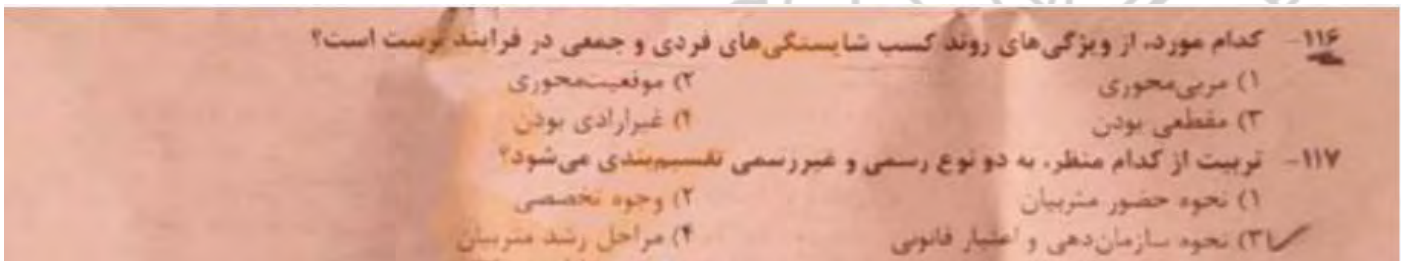 ۱۱۶- کدام مورد، از ویژگی‌های روند کسب شایستگی‌های فردی و جمعی در فرایند تربیت است؟
۱) مربی‌محوری ۲) موقعیت‌محوری
۳) مقطعی بودن ۴) غیرارادی بودن
۱۱۷- تربیت از کدام منظر، به دو نوع رسمی و غیررسمی تقسیم‌بندی می‌شود؟
۱) نحوه حضور متربیان ۲) وجوه تخصصی
۳) نحوه سازمان‌دهی و اعتبار قانونی ۴) مراحل رشد متربیان